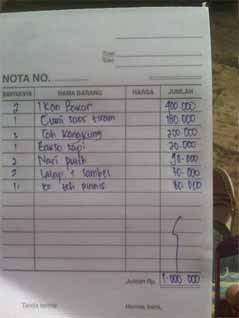 Tuan
Toko
NOTA NO.
BANYAKNYA NAMA BARANG HARGA JUMLAH
2 Ikan Bakar 400.000
1 Cumi saos tiram 180.000
Cah kangkung 200.000
1 Bakso Sapi 20.000
2 Nasi putih
2 Lalap + Sambel
es teh manis 80.000
Jumlah Rp. 1.000.000
Tanda terima Hormat kami,